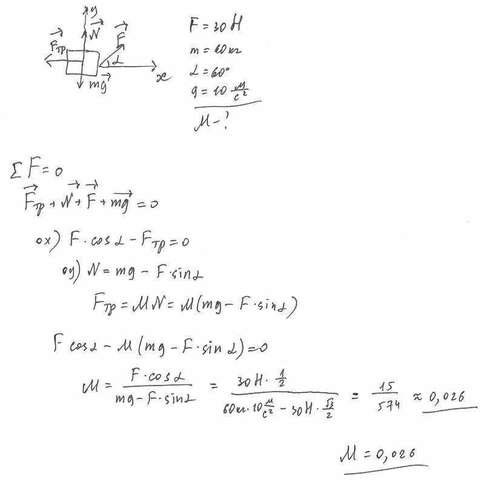 y
N
Fтр
F
α
x
mg
F = 30 Н
m = 60 кг
α = 60°
g = 10 м/с²
μ - ?
ΣF = 0
Fтр + N + F + mg = 0
ох) F · cos α - Fтр = 0
оу) N = mg - F · sin α
Fтр = μN = μ(mg - F · sin α)
F cos α - μ(mg - F · sin α) = 0
μ = F · cos α / mg - F · sin α = 30 Н · 1/2 / 60 кг · 10 м/с² - 30 Н · √3/2 = 15/574 ≈ 0,026
μ = 0,026